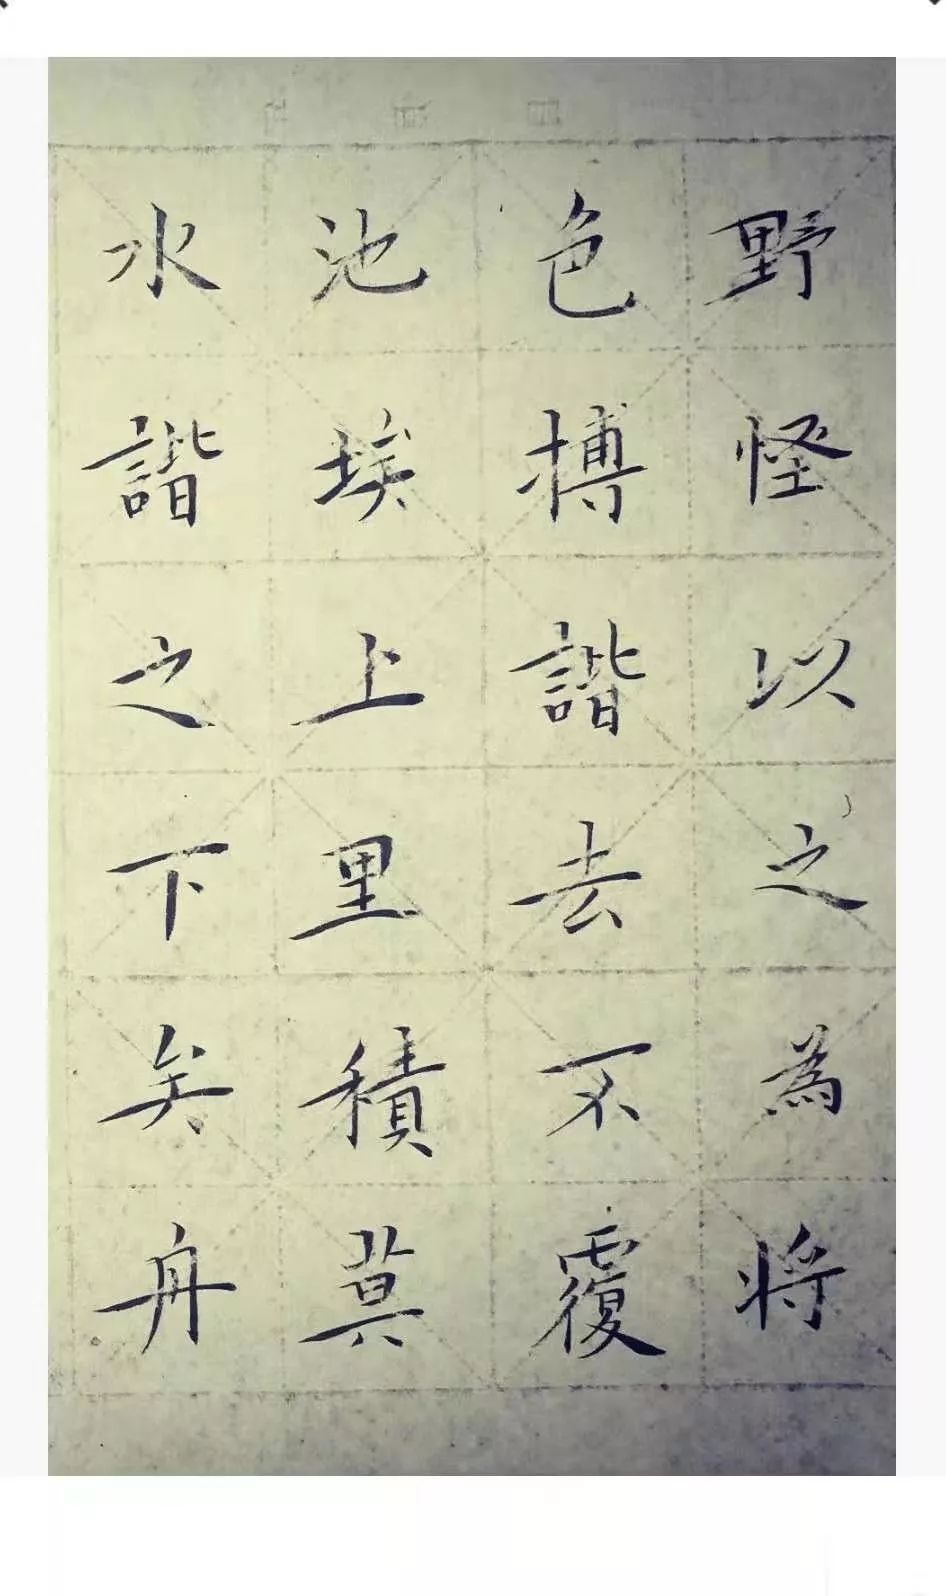 野怪以之為将
色搏諧去不覆
池埃上里積莫
水諧之下矣舟